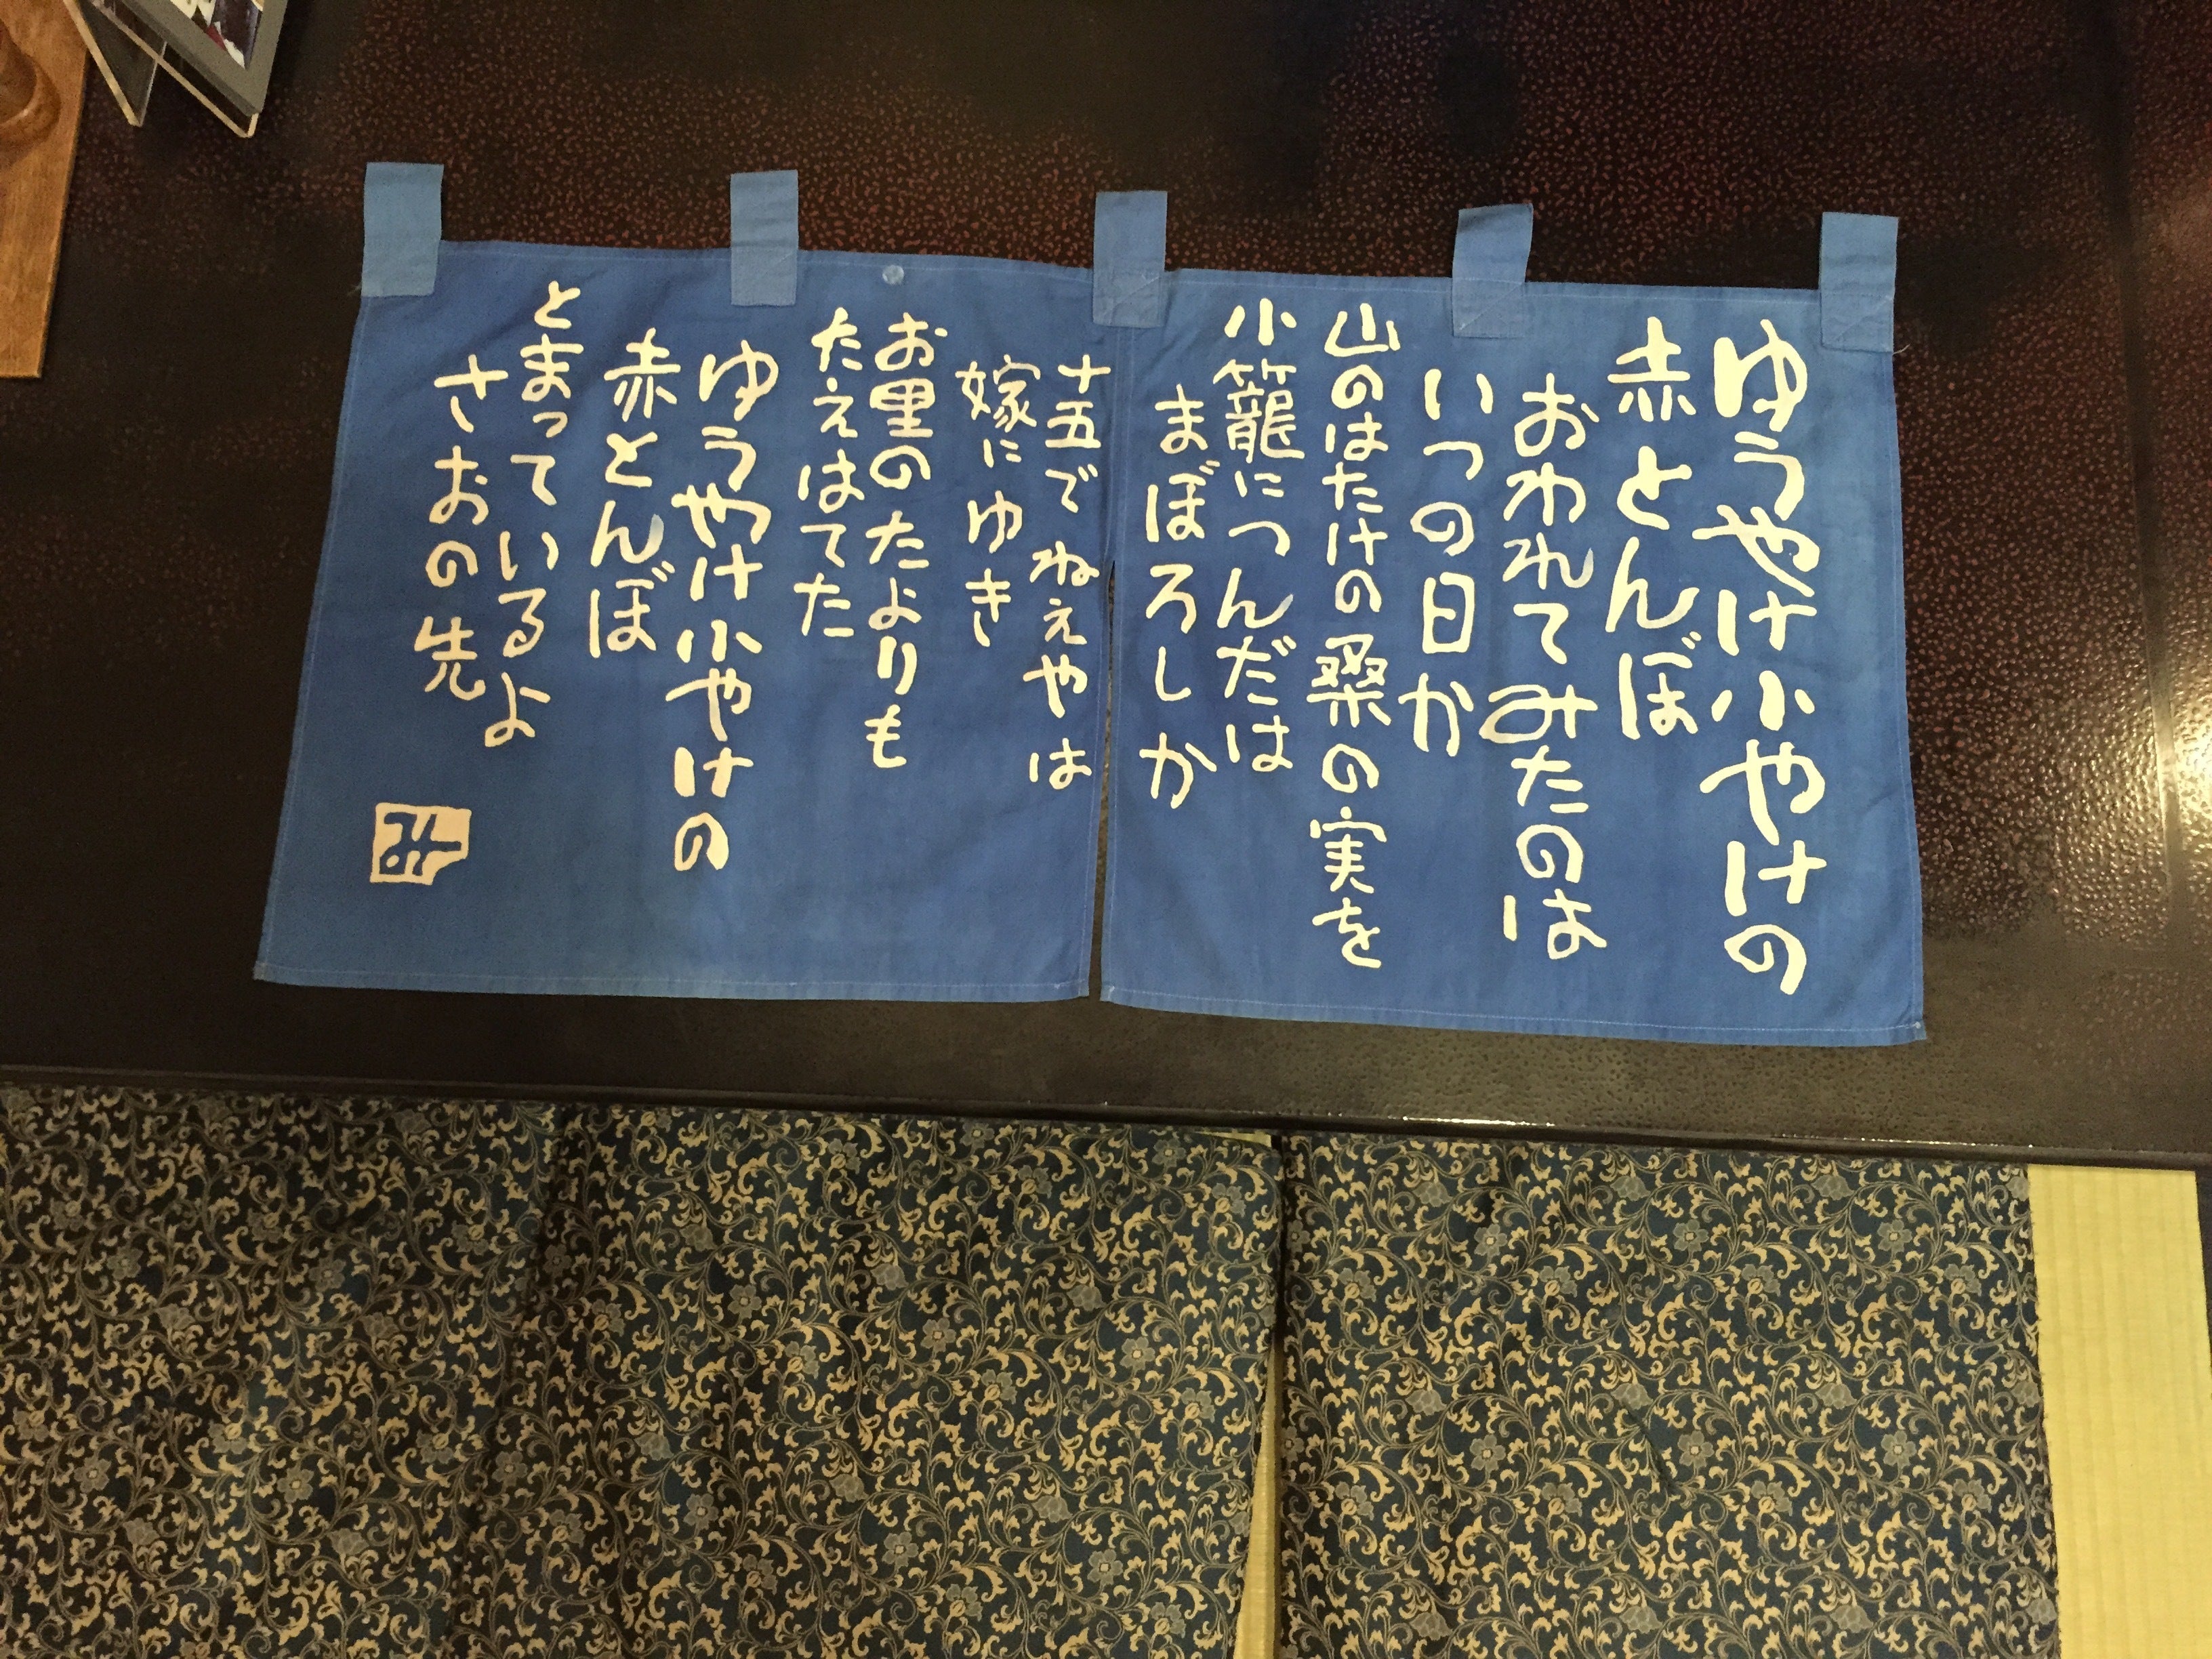 ゆうやけ小やけの
赤とんぼ
おわれてみたのは
いつの日か
山のはたけの桑の実を
小籠につんだは
まぼろしか
十五でねえやは
嫁にゆき
お里のたよりも
たえはてた
ゆうやけ小やけの
赤とんぼ
とまっているよ
さおの先